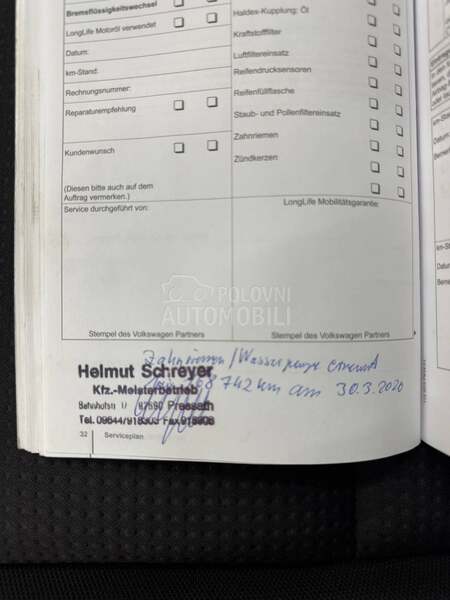 Bremsflüssigkeitswechsel
LongLife Motoröl verwendet
Datum:
km-Stand:
Rechnungsnummer:
Reparaturempfehlung
Kundenwunsch
(Diesen bitte auch auf dem
Auftrag vermerken.)
Service durchgeführt von:
Stempel des Volkswagen Partners
Haldex-Kupplung: Öl
Kraftstofffilter
Luftfiltereinsatz
Reifendrucksensoren
Reifenfüllflasche
Staub- und Pollenfiltereinsatz
Zahnriemen
Zündkerzen
LongLife Mobilitätsgarantie:
Stempel des Volkswagen Partners
POLOVNI
AUTOMOBILI
Zahnriemen/Wasserpumpe erneuert
742 km am 30.3.2020
Helmut Schreyer
Kfz.-Meisterbetrieb
Pressath
Tel. 09644/918303 Fax
32 Serviceplan
km-Stand
Datum: